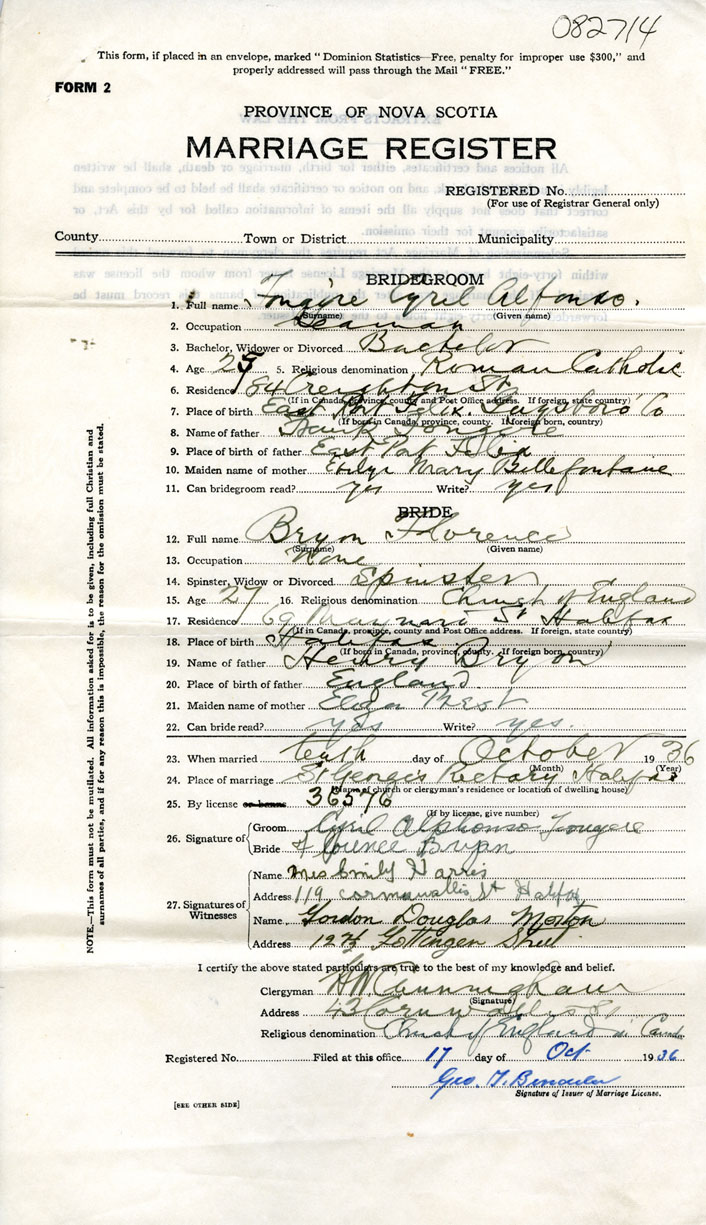 082714
This form, if placed in an envelope, marked "Dominion Statistics—Free, penalty for improper use $300," and
properly addressed will pass through the Mail "FREE."
FORM 2
PROVINCE OF NOVA SCOTIA
MARRIAGE REGISTER
REGISTERED No.
(For use of Registrar General only)
County Town or District Municipality
BRIDEGROOM
1. Full name Fougère Cyril Alfonso.
(Surname) (Given name)
2. Occupation Seaman
3. Bachelor, Widower or Divorced Bachelor
4. Age 25 5. Religious denomination Roman Catholic
6. Residence 184 Creighton St
(If in Canada, province, county and Post Office address. If foreign, state country)
7. Place of birth East Port Felix. Guysboro Co
(If born in Canada, province, county. If foreign born, country)
8. Name of father Fougere
9. Place of birth of father East Port Felix
10. Maiden name of mother Mary Bellefontaine
11. Can bridegroom read? yes Write? yes
BRIDE
12. Full name Bryon Florence
(Surname) (Given name)
13. Occupation None
14. Spinster, Widow or Divorced Spinster
15. Age 27 16. Religious denomination Church of England
17. Residence 69 Maynard St Halifax
(If in Canada, province, county and Post Office address. If foreign, state country)
18. Place of birth Halifax
(If born in Canada, province, county. If foreign born, country)
19. Name of father Henry Bryon
20. Place of birth of father England
21. Maiden name of mother Eliza West
22. Can bride read? yes Write? yes.
23. When married tenth day of October 1936
(Month) (Year)
24. Place of marriage St George's Rectory Halifax
(Name of church or clergyman's residence or location of dwelling house)
25. By license or banns 36576
(If by license, give number)
26. Signature of Groom Cyril Alphonso Fougere
Bride Florence Bryan
27. Signatures of Witnesses Name Mrs Emily Harris
Address 119 cornwallis St Halifax
Name Gordon Douglas Morton
Address 127½ Gottingen Street
I certify the above stated particulars are true to the best of my knowledge and belief.
Clergyman HW Cunningham
(Signature)
Address 43 Cornwallis St
Religious denomination Church of England in Canada
Registered No. Filed at this office 17 day of Oct. 1936
Geo. T.
Signature of Issuer of Marriage License.
[SEE OTHER SIDE]
NOTE.—This form must not be mutilated. All information asked for is to be given, including full Christian and
surnames of all parties, and if for any reason this is impossible, the reason for the omission must be stated.